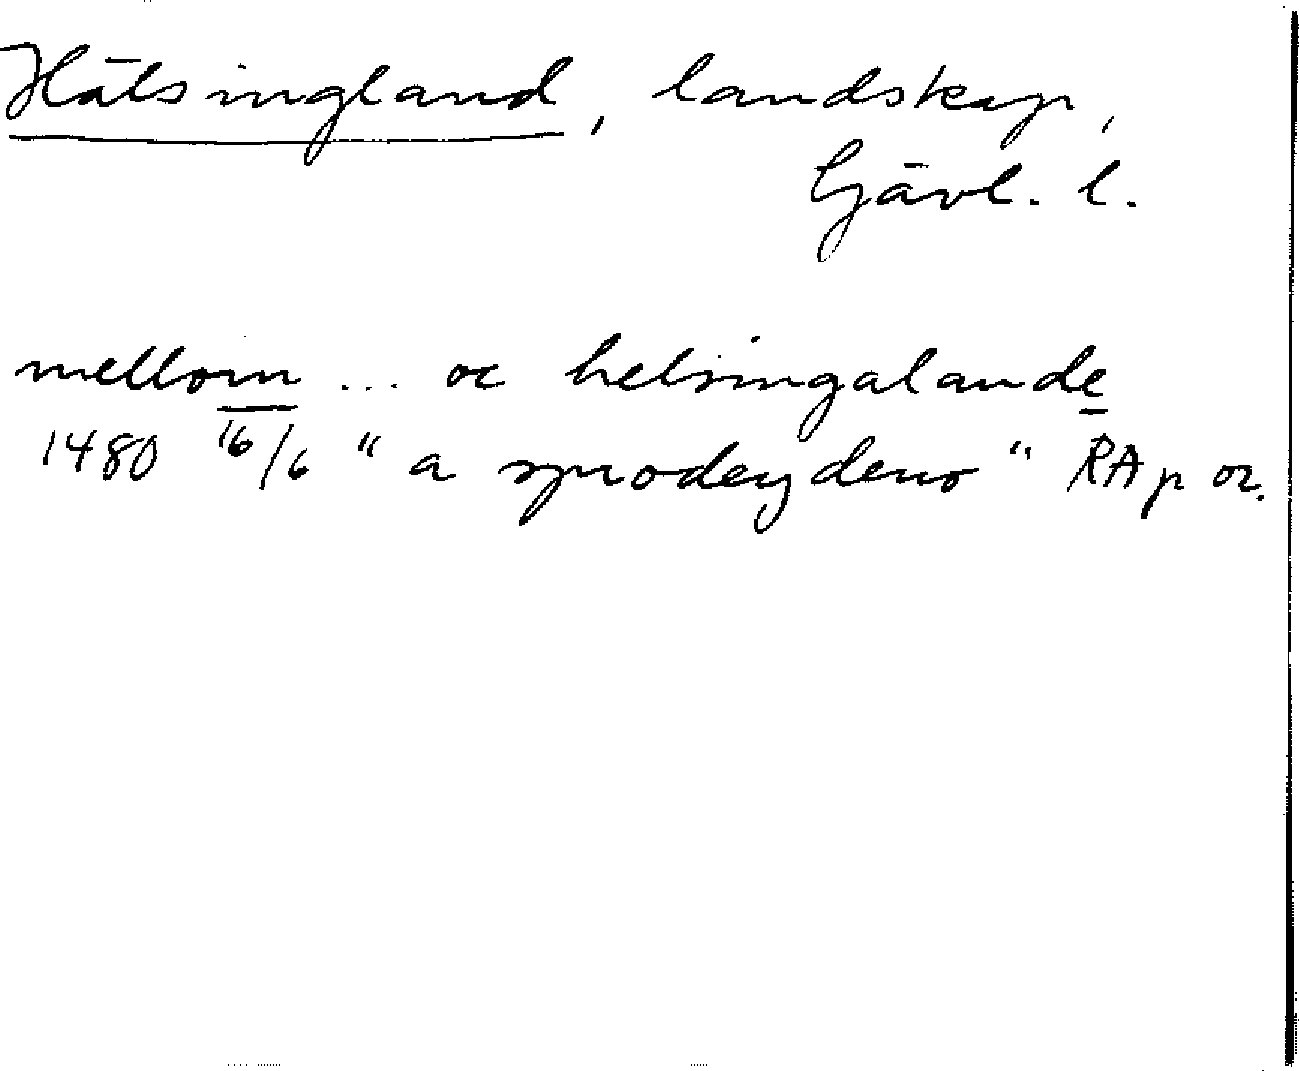 Hälsingland, landskap,
Gävl. l.
mellom ... oc helsingalande
1480 16/6 " a sprodeydeno " RA p or.